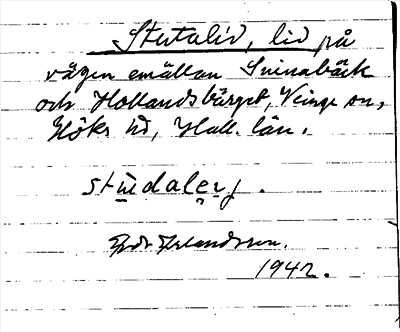 Stutalid, lid på
vägen emällan Svinabäck
och Hallandsbärget, Veinge sn,
Höks hd, Hall. län.
stu̲dale̲r̲j.
Erlandsson.
1942.